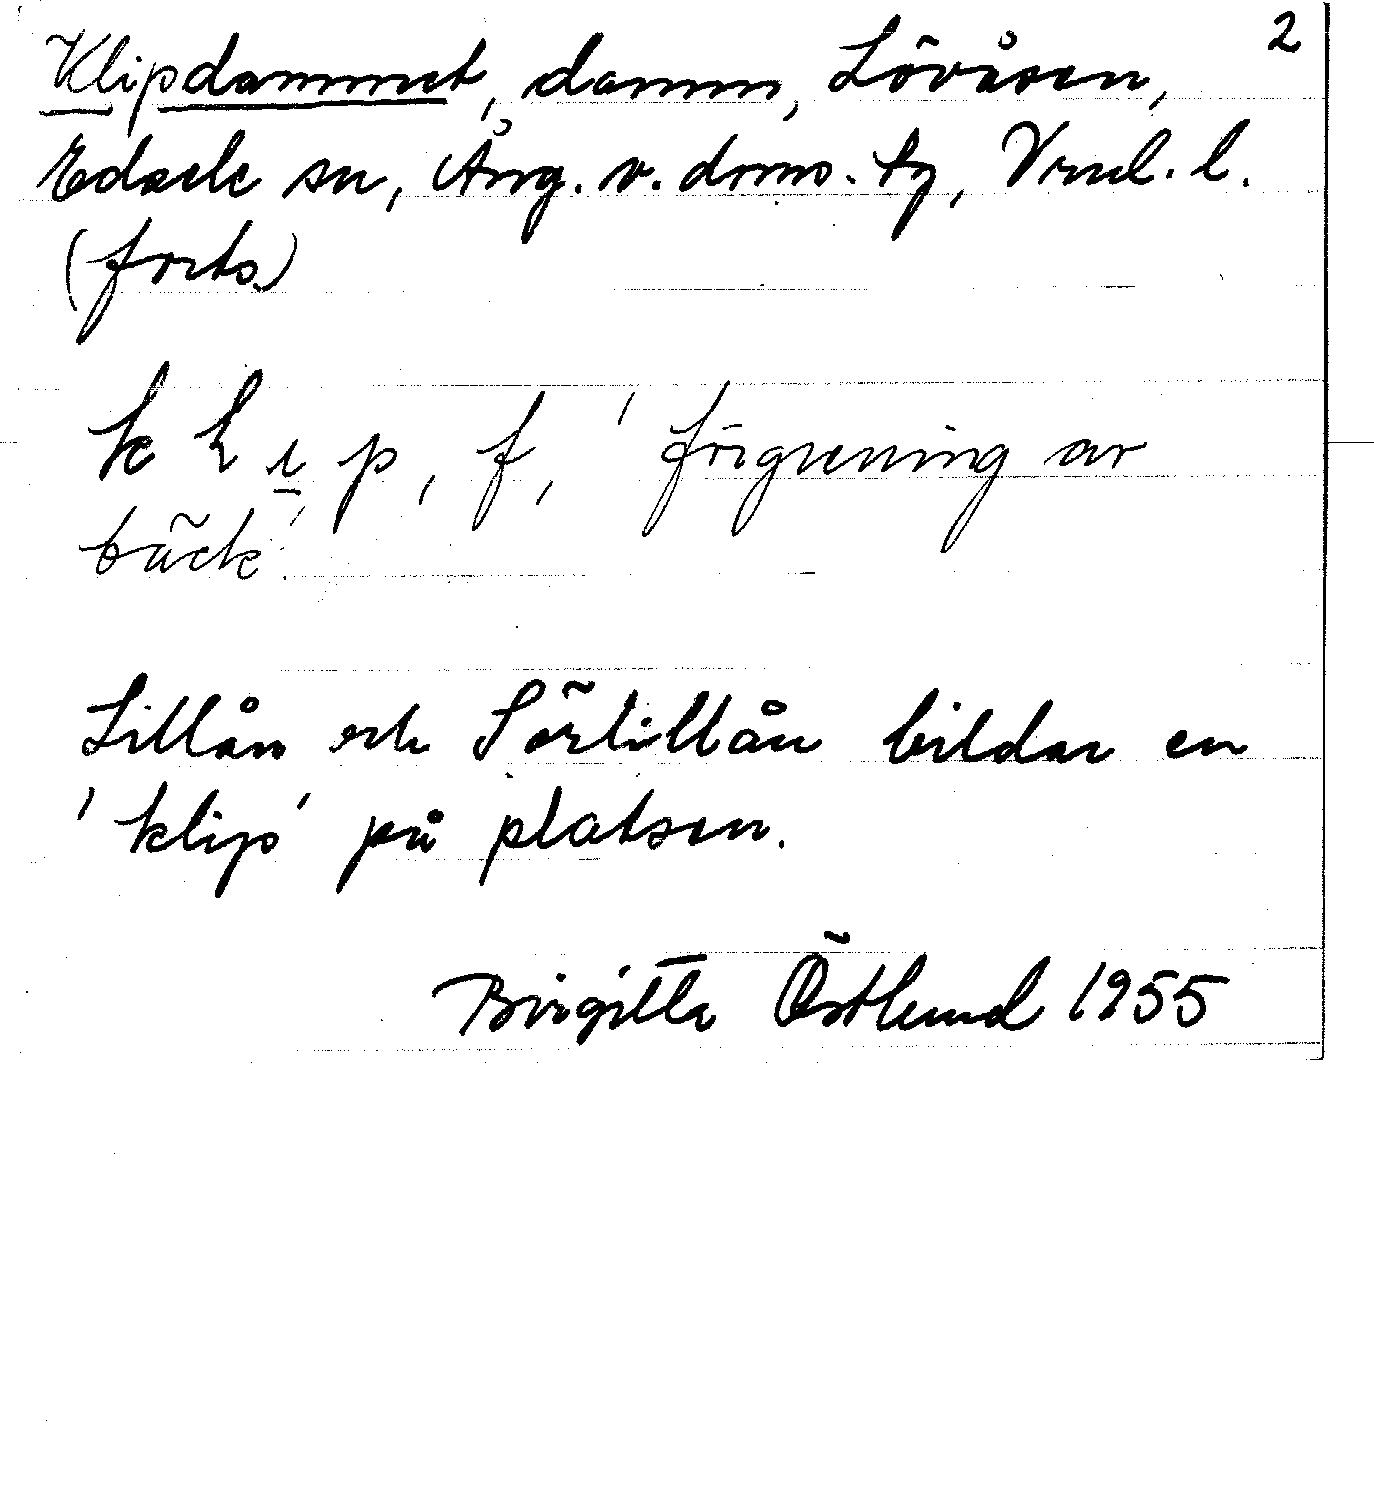 2
Klipdammet, damm, Lövåsen,
Edsele sn, Ång. v. doms. tg, Vrnl. l.
(forts.)
k l i p, f, 'förgrening av
bäck'.
Lillån och Sörlillån bildar en
'klip' på platsen.
Birgitta Östlund 1955